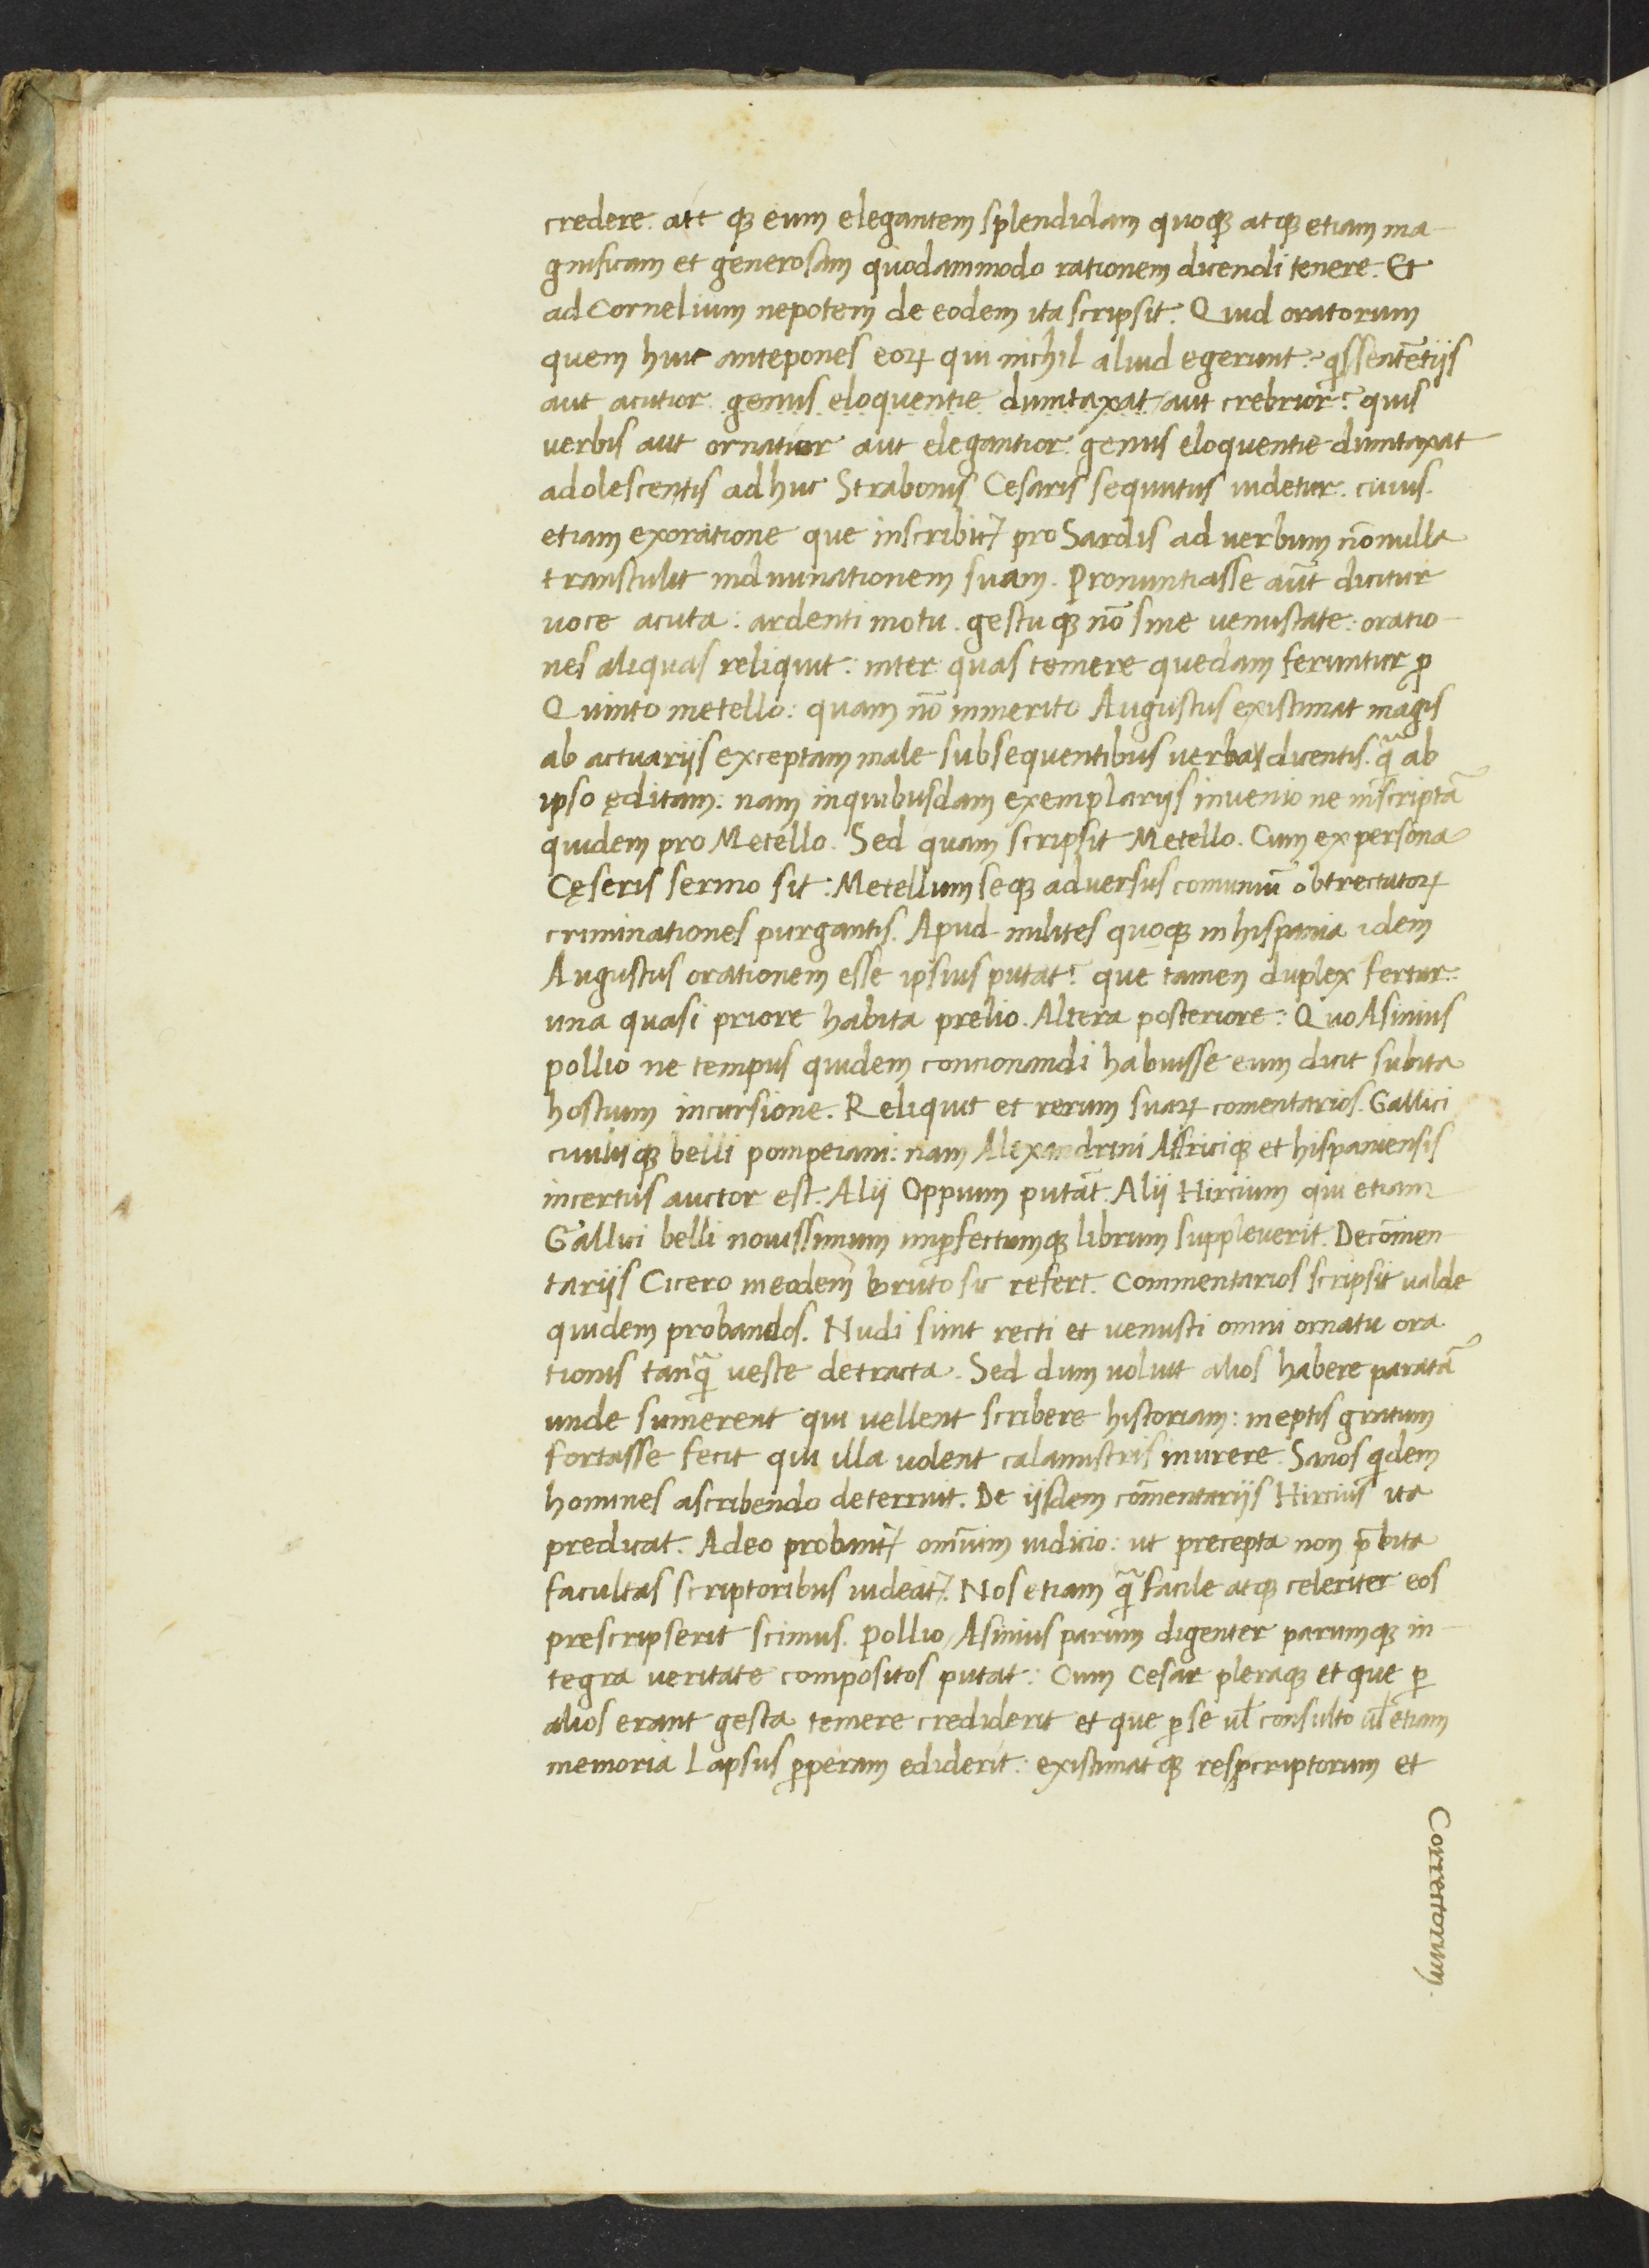 credere. att qꝫ eum elegantem splendidam quoqꝫ atqꝫ etiam ma-
gnificam et generosam quodammodo rationem dicendi tenere. Et
ad Cornelium nepotem de eodem ita scripsit. Quid oratorum
quem huic antepones eoꝝ qui nichil aliud egerunt? qͥs sentētiis
aut acutior genus eloquentie dumtaxat / aut crebrior? quis
verbis aut ornatior aut elegantior genus eloquentie dumtaxat
adolescentis adhuc Strabonis Cesaris sequutus uidetur. cuius
etiam ex oratione que inscribit᷑ pro Sardis ad uerbum nōnulla
transtulit in diuinationem suam. Pronuntiasse aūt dicitur
uoce acuta: ardenti motu. gestuqꝫ nō sine uenustate: oratio-
nes aliquas reliquit: inter quas temere quedam feruntur ꝓ
Quinto metello: quam nō inmerito Augustus existimat magis
ab actuarijs exceptam male subsequentibus uerba dicentis. qͣ̃ ab
ipso ęditam: nam in quibusdam exemplarijs inuenio ne inscriptā
quidem pro Metello. Sed quam scripsit Metello. Cum ex persona
Cęseris sermo sit: Metellum seqꝫ aduersus comuniū obtrectatoꝝ
criminationes purgantis. Apud milites quoqꝫ in hispania idem
Augustus orationem esse ipsius putat? que tamen duplex fertur:
una quasi priore habita prelio. Altera posteriore: Quo Asinius
pollio ne tempus quidem concionandi habuisse eum dicit subita
hostium incursione. Reliquit et rerum suaꝝ comentarios. Gallici
ciuilisqꝫ belli pompeiani: nam Alexandrini Affriciqꝫ et hispaniensis
incertus auctor est. Alij Oppium putāt. Alij Hircium qui etiam
Gallici belli nouissimum imꝑfectumqꝫ librum suppleuerit. De cōmen
tarijs Cicero in eodem bruto sic refert. Commentarios scripsit ualde
quidem probandos. Nudi sunt recti et uenusti omni ornatu ora
tionis tanqͣ̃ ueste detracta. Sed dum uoluit alios habere paratā
unde sumerent qui uellent scribere historiam: ineptis gratum
fortasse fecit qui illa uolent calamistris inurere. Sanos qͥdem
homines ascribendo deterruit. De ijsdem cōmentarijs Hircius ita
predicat. Adeo probant᷑ omīum iudicio: ut precepta non p̄bita
facultas scriptoribus uideat᷑. Nos etiam qͣ̃ facile atqꝫ celeriter eos
prescripserit scimus. Pollio / Asinius parum digenter parumqꝫ in-
tegra ueritate compositos putat: Cum Cesar pleraqꝫ et que ꝑ
alios erant gesta temere crediderit et que ꝑ se ul̄ consulto ul̄ etiam
memoria lapsus ꝑperam ediderit: existimatqꝫ rescriptorum et
Correctorum.